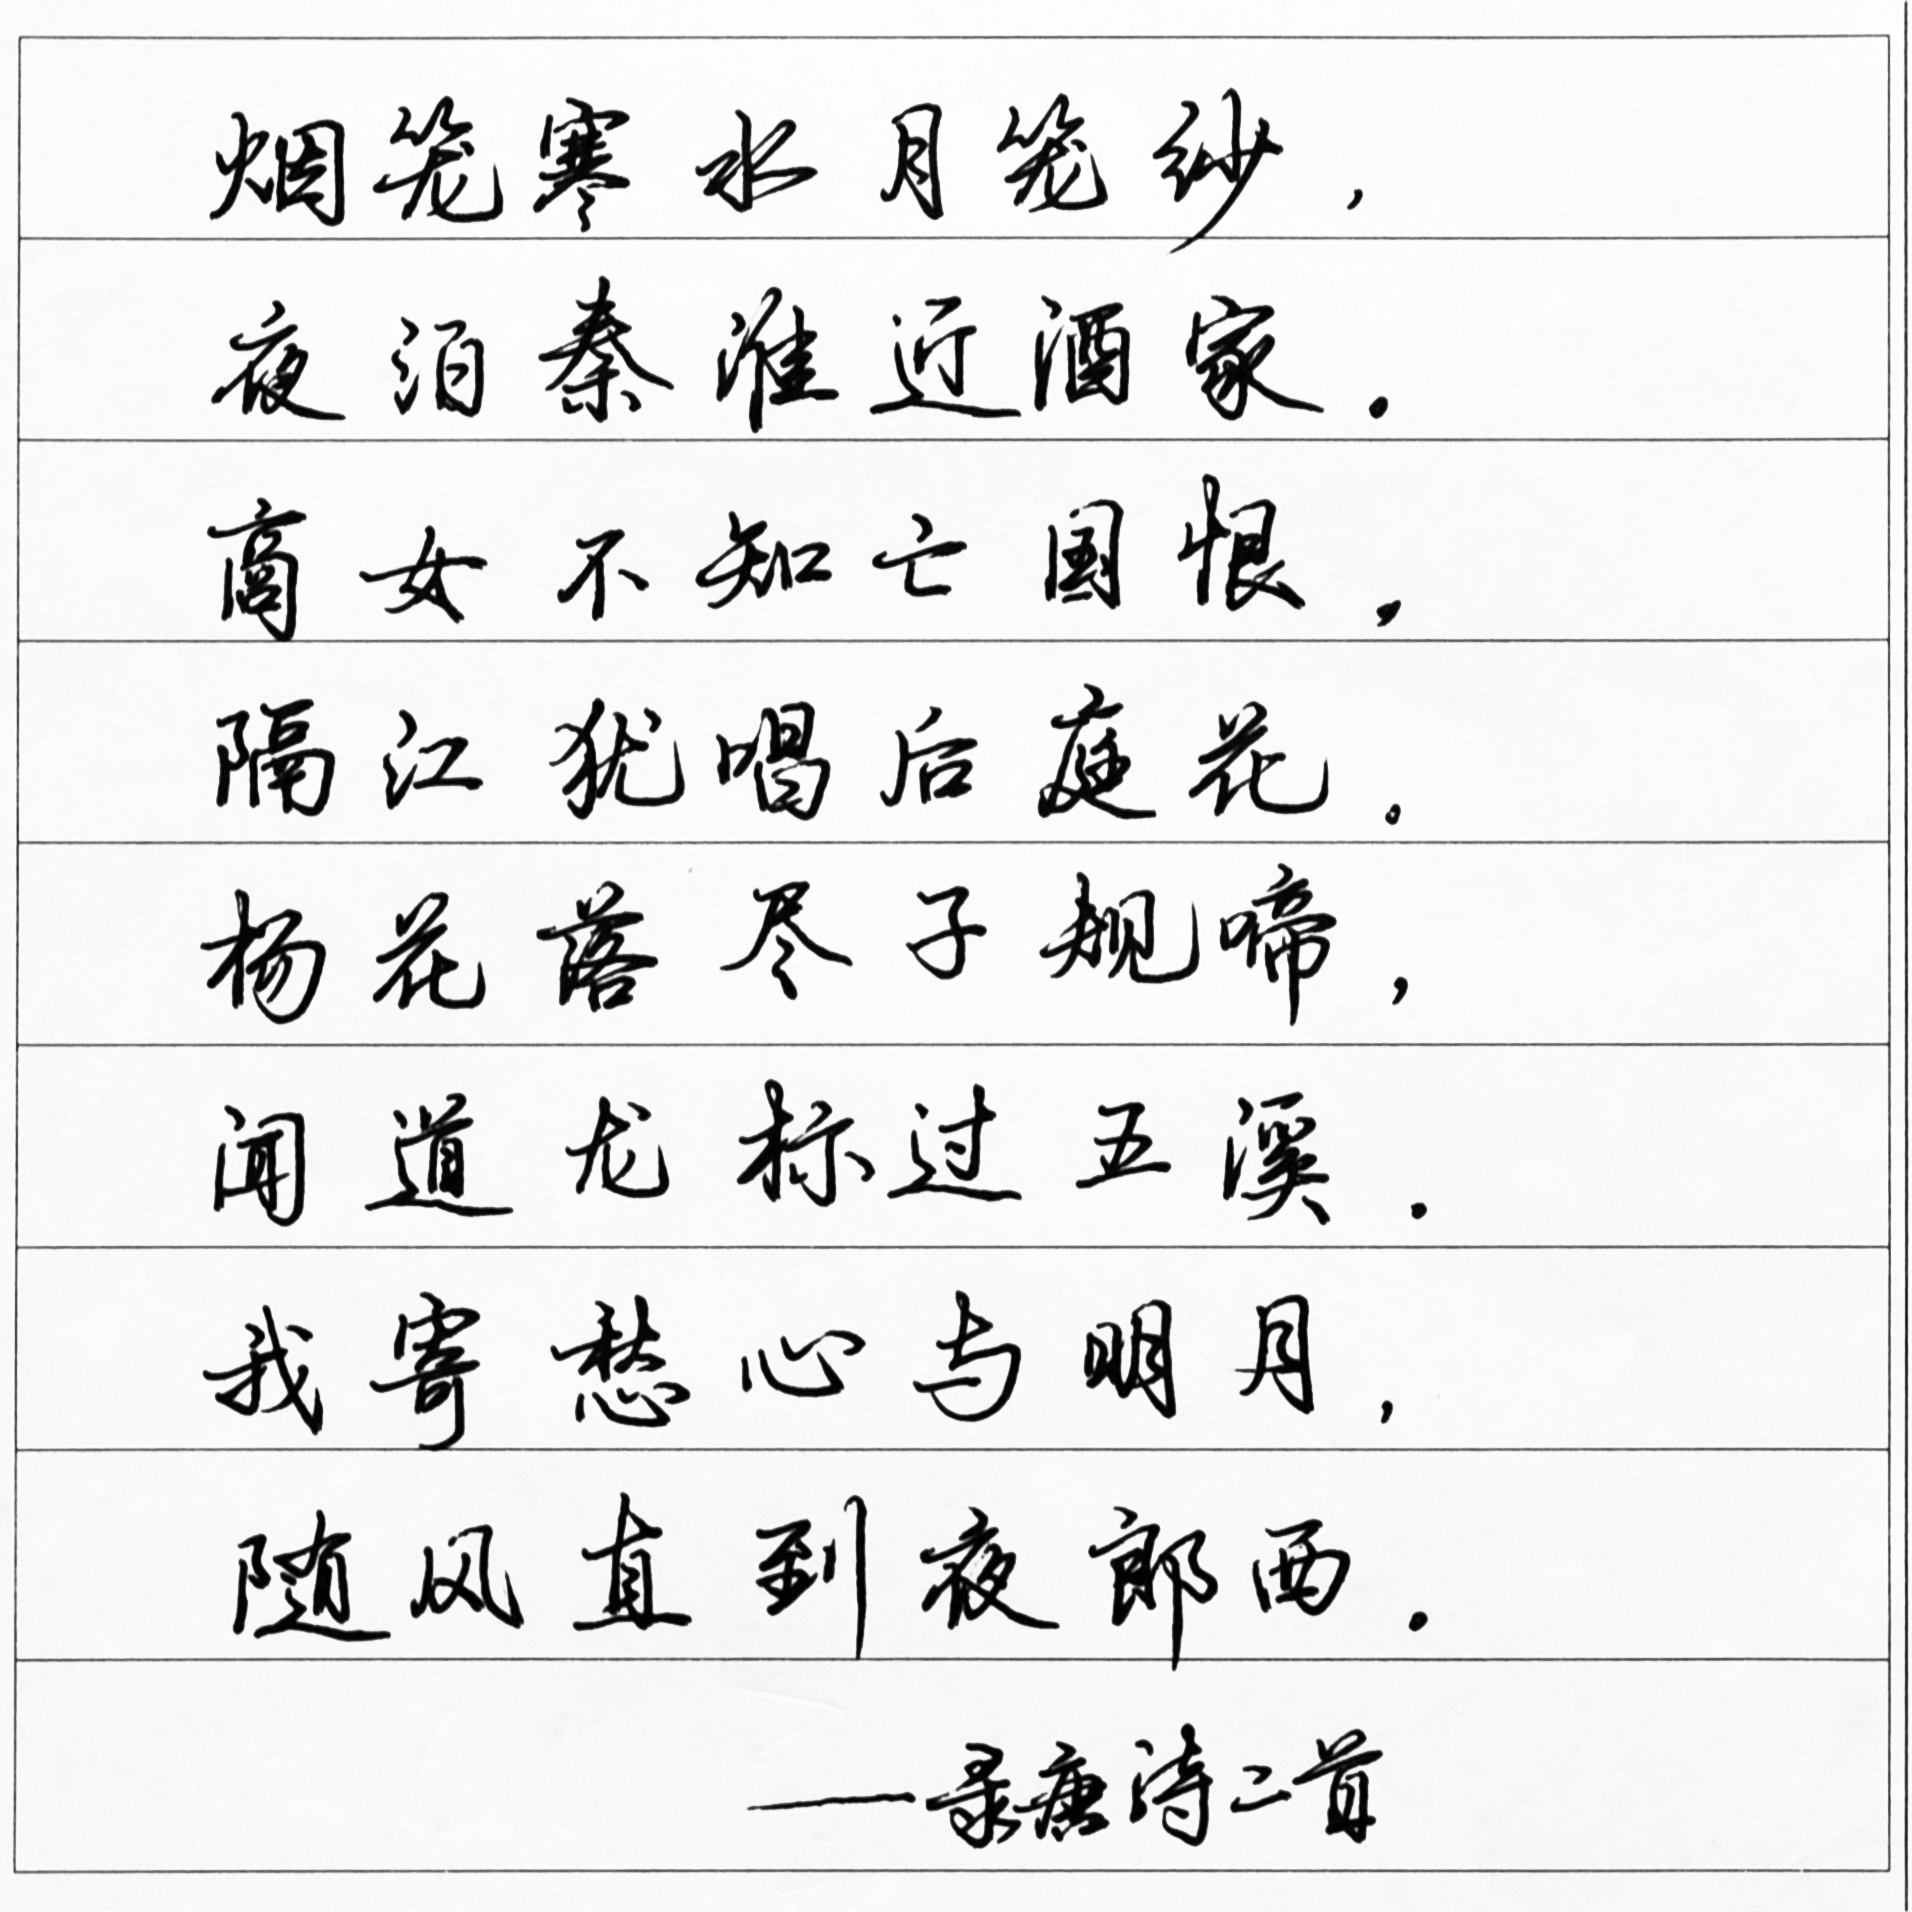 烟笼寒水月笼纱，
夜泊秦淮近酒家．
商女不知亡国恨，
隔江犹唱后庭花．
杨花落尽子规啼，
闻道龙标过五溪．
我寄愁心与明月，
随风直到夜郎西．
—录唐诗二首